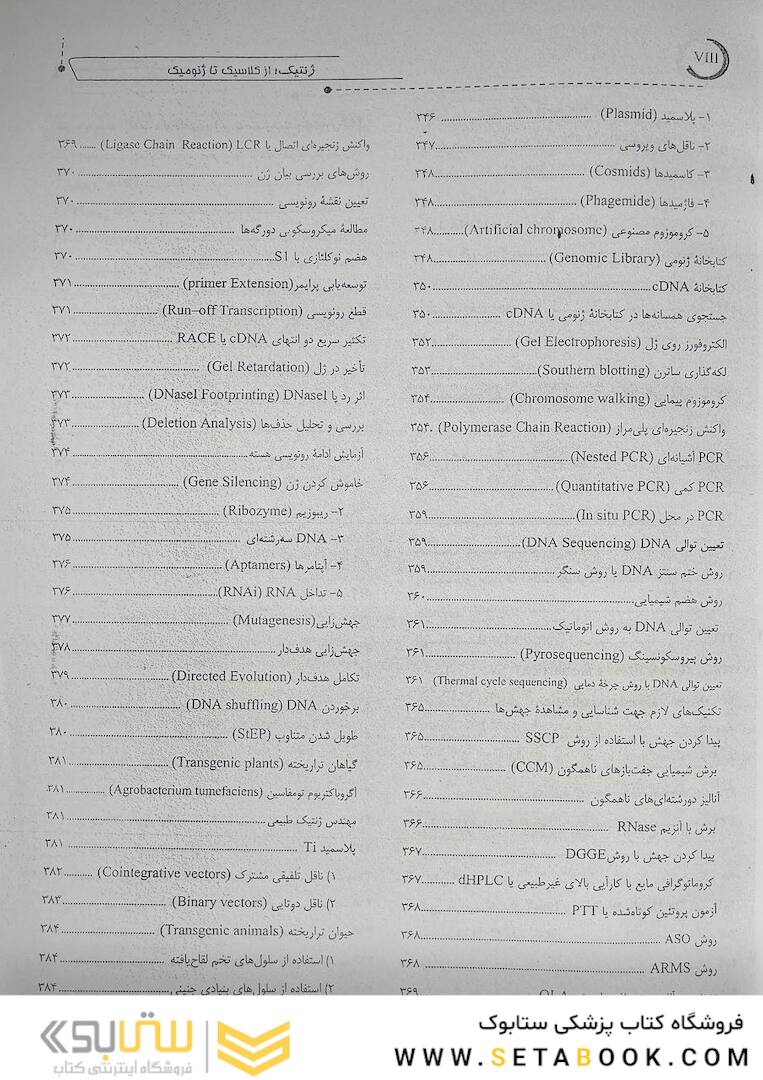 VIII
ژنتیک؛ از کلاسیک تا ژنومیک
۱- پلاسمید (Plasmid) ۳۴۶
۲- ناقل‌های ویروسی ۳۴۷
۳- کاسمیدها (Cosmids) ۳۴۸
۴- فاژمیدها (Phagemide) ۳۴۸
۵- کروموزوم مصنوعی (Artificial chromosome) ۳۴۸
کتابخانهٔ ژنومی (Genomic Library) ۳۴۸
کتابخانهٔ cDNA ۳۵۰
جستجوی همسانه‌ها در کتابخانهٔ ژنومی یا cDNA ۳۵۰
الکتروفورز روی ژل (Gel Electrophoresis) ۳۵۲
لکه‌گذاری ساترن (Southern blotting) ۳۵۳
کروموزوم پیمایی (Chromosome walking) ۳۵۴
واکنش زنجیره‌ای پلی‌مراز (Polymerase Chain Reaction) ۳۵۴
PCR آشیانه‌ای (Nested PCR) ۳۵۶
PCR کمی (Quantitative PCR) ۳۵۶
PCR در محل (In situ PCR) ۳۵۹
تعیین توالی DNA (DNA Sequencing) ۳۵۹
روش ختم سنتز DNA یا روش سنگر ۳۵۹
روش هضم شیمیایی ۳۶۰
تعیین توالی DNA به روش اتوماتیک ۳۶۱
روش پیروسکونسینگ (Pyrosequencing) ۳۶۱
تعیین توالی DNA با روش چرخهٔ دمایی (Thermal cycle sequencing) ۳۶۱
تکنیک‌های لازم جهت شناسایی و مشاهدهٔ جهش‌ها ۳۶۵
پیدا کردن جهش با استفاده از روش SSCP ۳۶۵
برش شیمیایی جفت‌بازهای ناهمگون (CCM) ۳۶۵
آنالیز دورشته‌ای‌های ناهمگون ۳۶۶
برش با آنزیم RNase ۳۶۶
پیدا کردن جهش با روش DGGE ۳۶۷
کروماتوگرافی مایع با کارآیی بالای غیرطبیعی یا dHPLC ۳۶۷
آزمون پروتئین کوتاه‌شده یا PTT ۳۶۸
روش ASO ۳۶۸
روش ARMS ۳۶۸
OLA ۳۶۹
واکنش زنجیره‌ای اتصال یا LCR (Ligase Chain Reaction) ۳۶۹
روش‌های بررسی بیان ژن ۳۷۰
تعیین نقشهٔ رونویسی ۳۷۰
مطالعهٔ میکروسکوپی دورگه‌ها ۳۷۰
هضم نوکلئازی با S1 ۳۷۰
توسعه‌یابی پرایمر (primer Extension) ۳۷۱
قطع رونویسی (Run–off Transcription) ۳۷۱
تکثیر سریع دو انتهای cDNA یا RACE ۳۷۲
تأخیر در ژل (Gel Retardation) ۳۷۲
اثر رد پا DNaseI (DNaseI Footprinting) ۳۷۳
بررسی و تحلیل حذف‌ها (Deletion Analysis) ۳۷۳
آزمایش ادامهٔ رونویسی هسته ۳۷۴
خاموش کردن ژن (Gene Silencing) ۳۷۴
۲- ریبوزیم (Ribozyme) ۳۷۵
۳- DNA سه‌رشته‌ای ۳۷۵
۴- آپتامرها (Aptamers) ۳۷۶
۵- تداخل RNA (RNAi) ۳۷۶
جهش‌زایی (Mutagenesis) ۳۷۷
جهش‌زایی هدف‌دار ۳۷۸
تکامل هدف‌دار (Directed Evolution) ۳۷۹
برخوردن DNA (DNA shuffling) ۳۸۰
طویل شدن متناوب (StEP) ۳۸۰
گیاهان تراریخته (Transgenic plants) ۳۸۱
اگروباکتریوم تومفاسین (Agrobacterium tumefaciens) ۳۸۱
مهندس ژنتیک طبیعی ۳۸۱
پلاسمید Ti ۳۸۱
۱) ناقل تلفیقی مشترک (Cointegrative vectors) ۳۸۲
۲) ناقل دوتایی (Binary vectors) ۳۸۳
حیوان تراریخته (Transgenic animals) ۳۸۴
۱) استفاده از سلول‌های تخم لقاح‌یافته ۳۸۴
۲) استفاده از سلول‌های بنیادی جنینی ۳۸۴
فروشگاه کتاب پزشکی ستابوک
WWW.SETABOOK.COM
ستابوک
فروشگاه اینترنتی کتاب